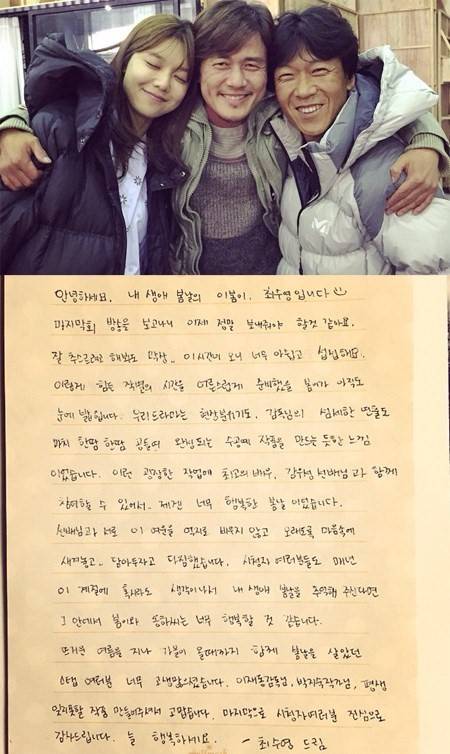 안녕하세요. 내 생애 봄날의 이봄이, 최수영입니다
마지막회 방송을 보고나니 이제 정말 보내줘야 할것 같아요.
잘 추스르려 해봐도 막상.. 이시간이 오니 너무 아쉽고 섭섭해요.
이렇게 힘든 작별의 시간을 어른스럽게 준비했을 봄이가 아직도
눈에 밟힙니다. 우리드라마는 현장분위기도, 감독님의 섬세한 연출도
마치 한땀 한땀 공들여 완성되는 수공예 작품을 만드는 듯한 느낌
이었습니다. 이런 굉장한 작업에 최고의 배우, 감우성 선배님과 함께
참여할 수 있어서.. 제겐 너무 행복한 봄날 이었습니다.
선배님과 서로 이 여운을 억지로 비우지 않고 오래도록 마음속에
새겨놓고.. 담아두자고 다짐했습니다. 시청자 여러분들도 매년
이 계절에 혹시라도 생각이나서 내 생애 봄날을 추억해 주신다면
그 안에서 봄이와 동하씨는 너무 행복할 것 같습니다.
뜨거운 여름을 지나 가을이 올때까지 함께 봄날을 살았던
스탭 여러분 너무 고생많으셨습니다. 이재동감독님, 박지숙작가님, 평생
잊지못할 작품 만들어주셔서 고맙습니다. 마지막으로 시청자여러분 진심으로
감사드립니다. 늘 행복하세요. - 최수영 드림